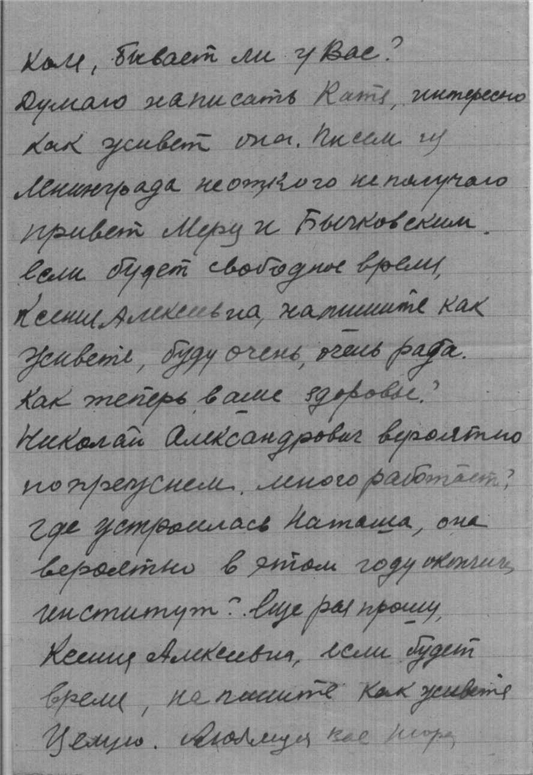 Коле, бывает ли у Вас?
Думаю написать Кате, интересно
как живет она. Писем из
Ленинграда не от кого не получаю
привет Меру и Бычковским.
если будет свободное время,
Ксения Алексеевна, напишите как
живете, буду очень, очень рада.
Как теперь ваше здоровье?
Николай Александрович вероятно
по прежнем. много работает?
где устроилась Наташа, она
вероятно в этом году окончит
институт? Еще раз прошу,
Ксения Алексеевна, если будет
время, напишите как живете
Целую. Любящая вас